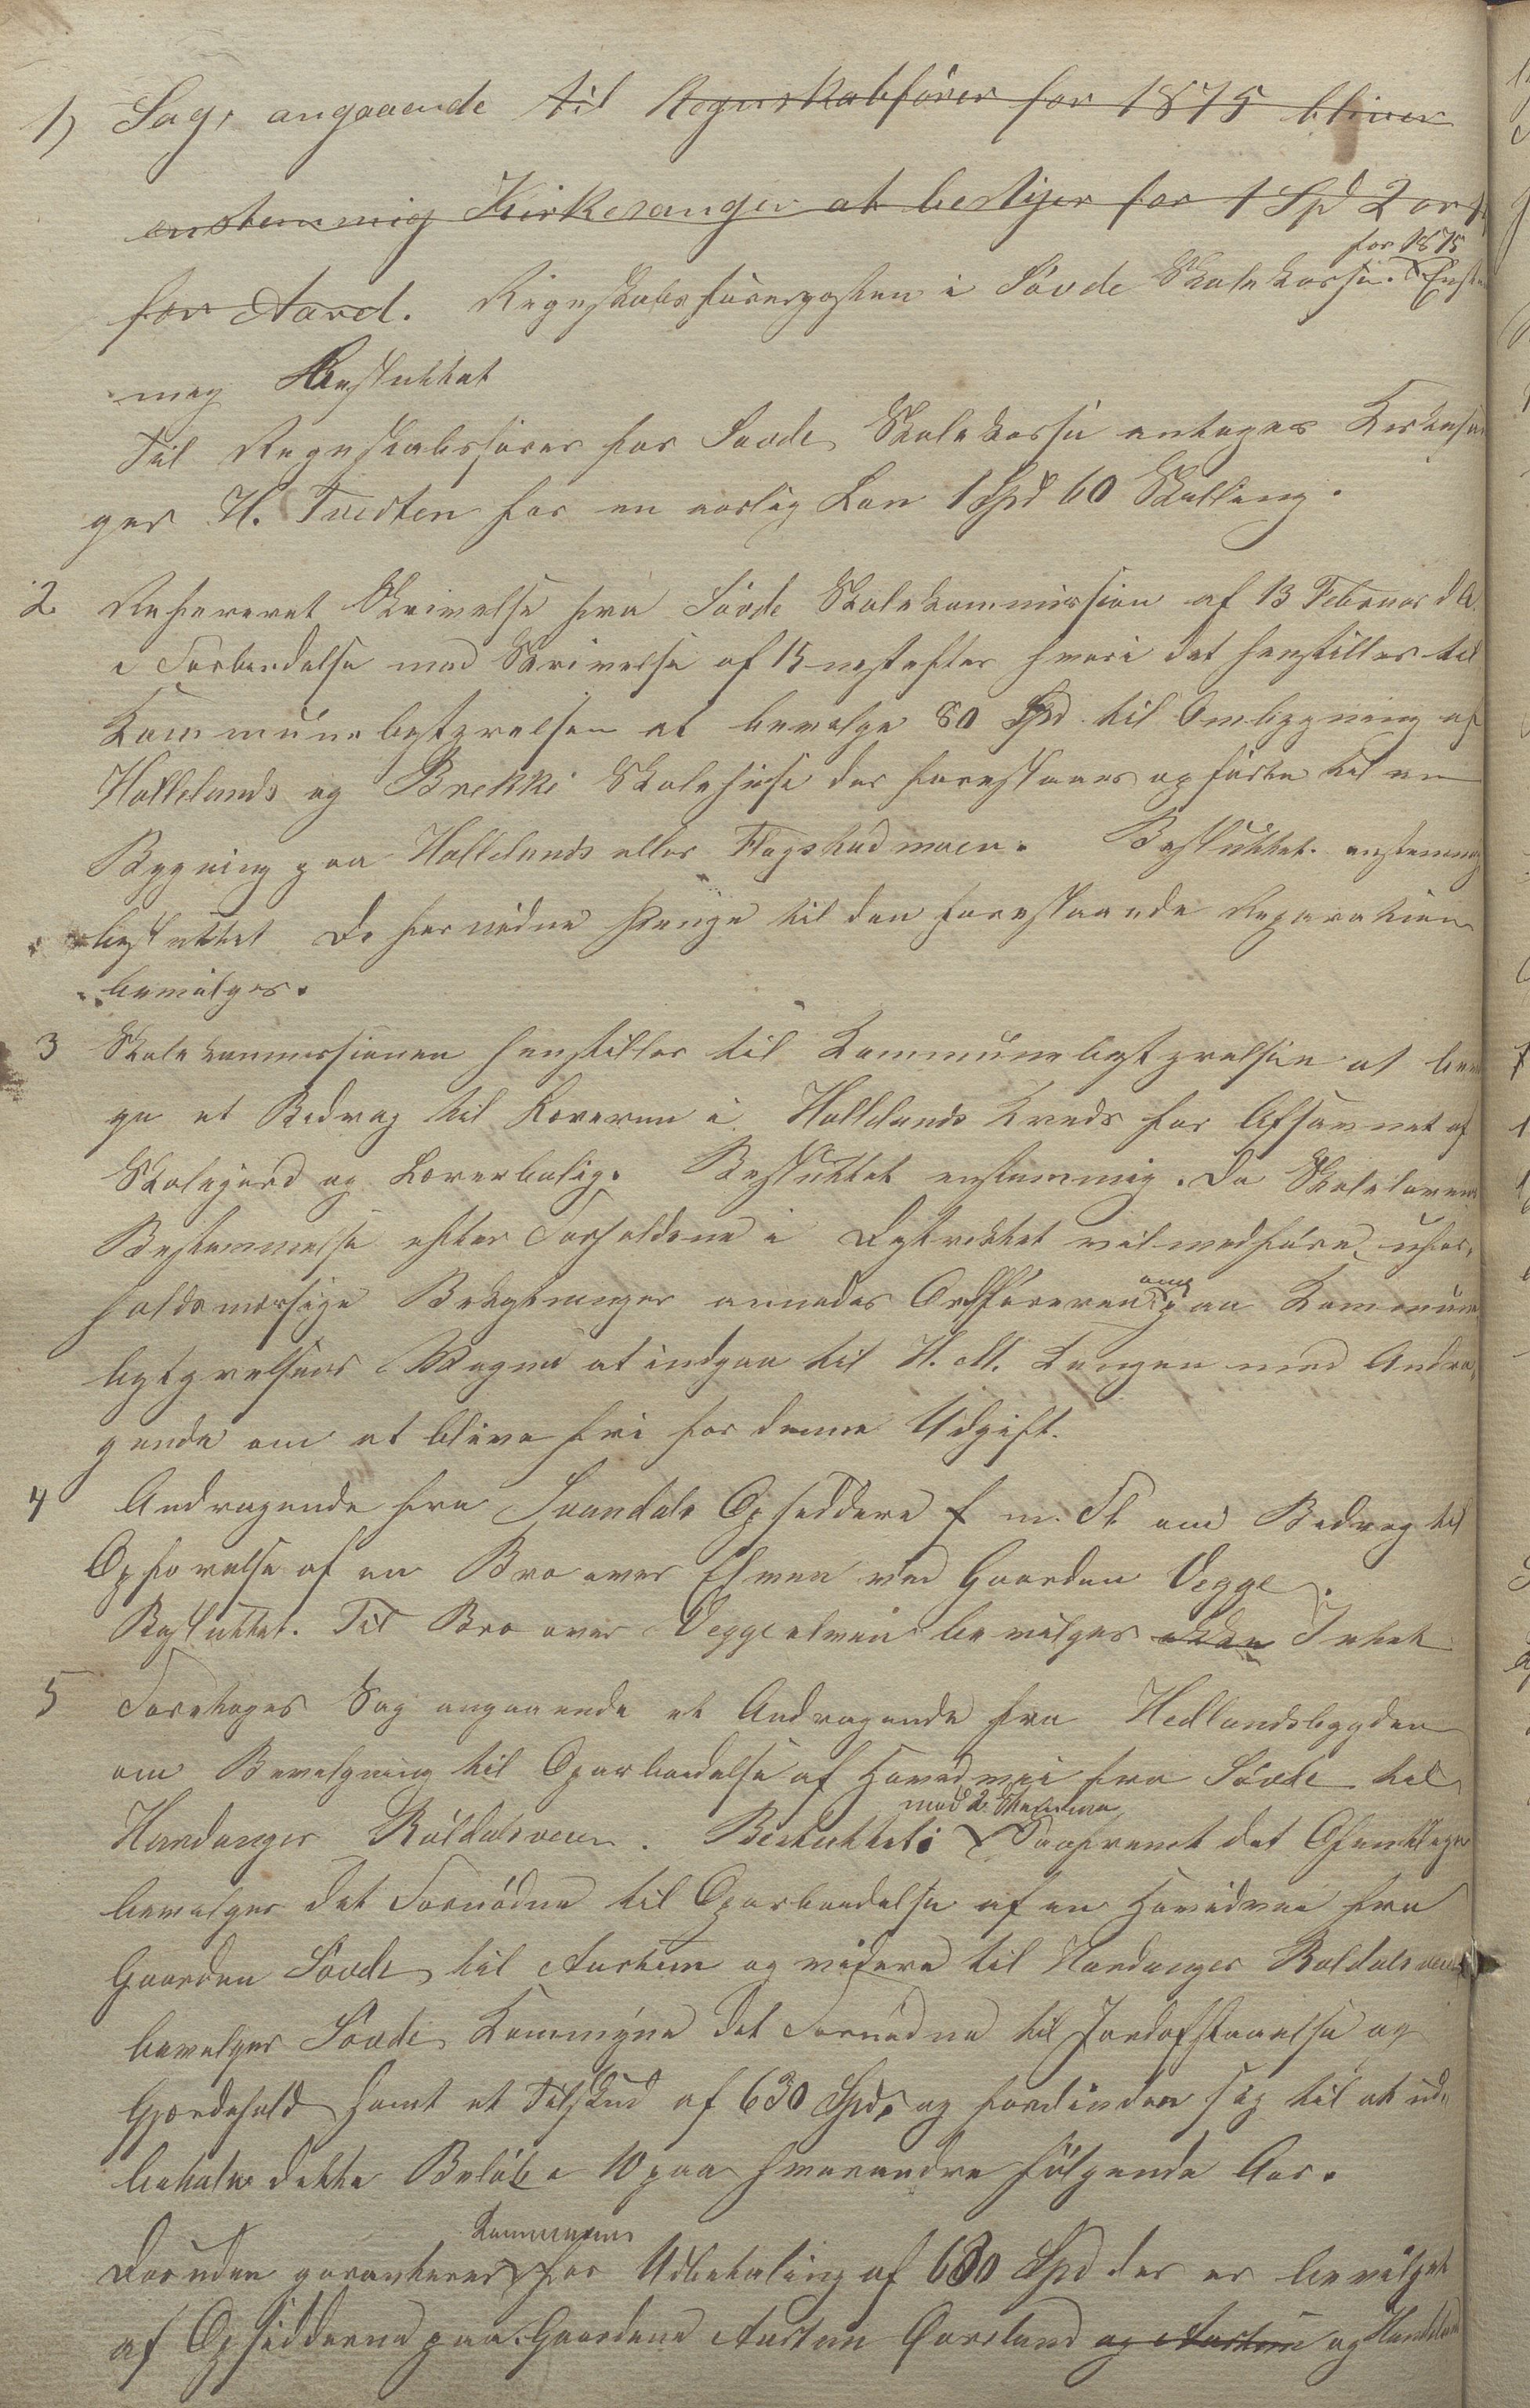 1) Sag, angaaende til Regnskabfører for 1875 bliver
enstemmig Kirkesanger at bestyer for 1 Spd 2 ort
for Aaret. Regnskabsførerposten i Søvde Skolekasse for 1875. Enstem
mig Besluttet
Til Regnskabsfører for Søvde Skolekasse antages Kirkesan
ger H. Tvedten for en aarlig Løn 1 Spd 60 Skilling.
2. Refereret Skrivelse fra Søvde Skolekommission af 13 Februar d.A.
i Forbindelse med Skrivelse af 15 nestefter hvori det henstilles til
Kommunebestyrelsen at bevilge 80 Spd til Ombygning af
Hallelands og Brekke Skolehuse der forestaaes opførte til en
Bygning paa Hallelands eller Flogstadmoen. Besluttet. enstemmig
besluttet De fornødne Penge til den forestaaende Reparation
bevilges.
3 Skolekommissionen henstiller til Kommunebestyrelsen at bevil
ge et Bidrag til Læreren i Hallelands Kreds for Afsavnet af
Skolejord og Lærerbolig. Besluttet enstemmig. Da Skolelovens
Bestemmelse efter Forholdene i Distriktet vil medføre ufor,
holdsmæssige Bekostninger anmodes Ordføreren om paa Kommune
bestyrelsens Vegne at indgaa til H. M. Kongen med Andra,
gende om at blive fri for denne Udgift.
4 Andragende fra Svandals Opsiddere f. m. Fl. om Bidrag til
Opførelse af en Bro over Elven ved Gaarden Vegge.
Besluttet. Til Bro over Veggeelven bevilges ikke Intet
5 Foretages Sag angaaende et Andragende fra Hedlandsbygden
om Bevilgning til Oparbeidelse af Hovedvei fra Søvde til
Hardanger Røldalsveien. Besluttet: med 2 Stemmer Saafremt det Offentlige
bevilger det Fornødne til Oparbeidelse af en Hovedvei fra
Gaarden Søvde til Austem og videre til Hardanger Røldalsveien
bevilger Søvde Kommune det Fornødne til Jordafstaaelse og
Gjærdehold samt et Tilskud af 630 Spd, og forbinder sig til at ud,
betale dette Beløb i 10 paa hverandre følgende Aar.
Desuden garanterer Kommunen for Udbetaling af 630 Spd der er bevilget
af Opsidderne paa Gaardene Austem Øvreland og Austem og